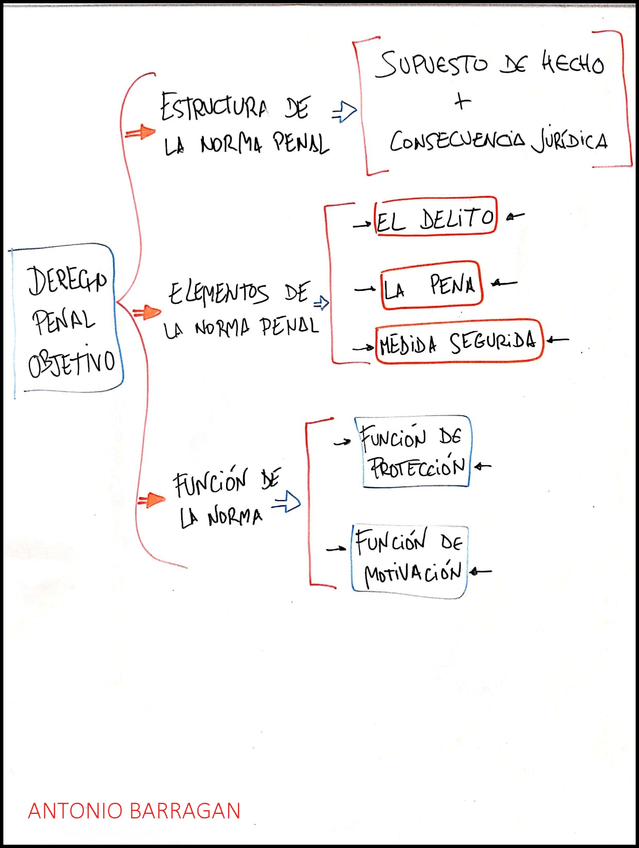 DERECHO
PENAL
OBJETIVO
ESTRUCTURA DE
LA NORMA PENAL
SUPUESTO DE HECHO
+
CONSECUENCIA JURÍDICA
ELEMENTOS DE
LA NORMA PENAL
EL DELITO
LA PENA
MEDIDA SEGURIDA
FUNCIÓN DE
LA NORMA
FUNCIÓN DE
PROTECCIÓN
FUNCIÓN DE
MOTIVACIÓN
ANTONIO BARRAGAN